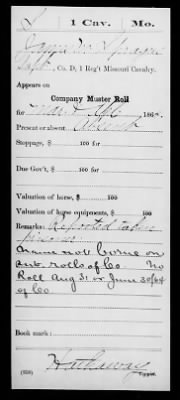 1 Cav. Mo.
Co. D, 1 Reg't Missouri Cavalry.
Appears on
Company Muster Roll
for 186
Present or absent Absent
Stoppage, $ 100 for
Due Gov't, $ 100 for
Valuation of horse, $ 100
Valuation of horse equipments, $ 100
Remarks: Reported taken
prisoner
Name not borne on
sub. rolls of Co. No
Roll Aug 31 or June 30/64
of Co
Book mark:
Hathaway
(358) Copyist.